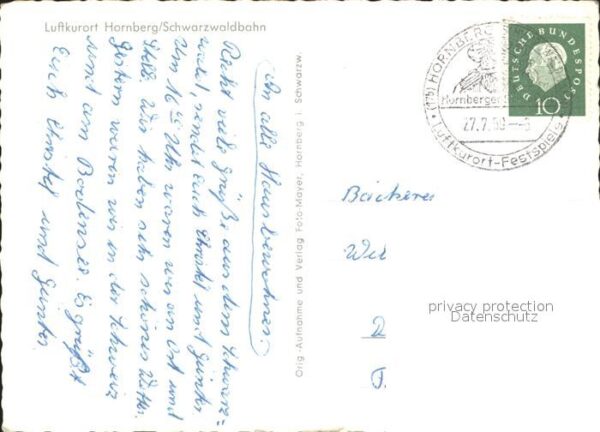 Luftkurort Hornberg/Schwarzwaldbahn
An alle Hausbewohner!
Recht viele Grüße aus dem Schwarz=
wald, sendet euch Christel und Günter
Um 16 Uhr waren wir an Ort und
Stelle. Wir haben sehr schönes Wetter.
Gestern waren wir in der Schweiz
und am Bodensee. Es grüßt
Euch Christel und Günter
Orig.-Aufnahme und Verlag Foto-Mayer, Hornberg i. Schwarzw.
(17b) HORNBERG
Hornberger
27.7.59
Luftkurort-Festspiele
DEUTSCHE BUNDESPOST
10
Bäckerei
privacy protection
Datenschutz